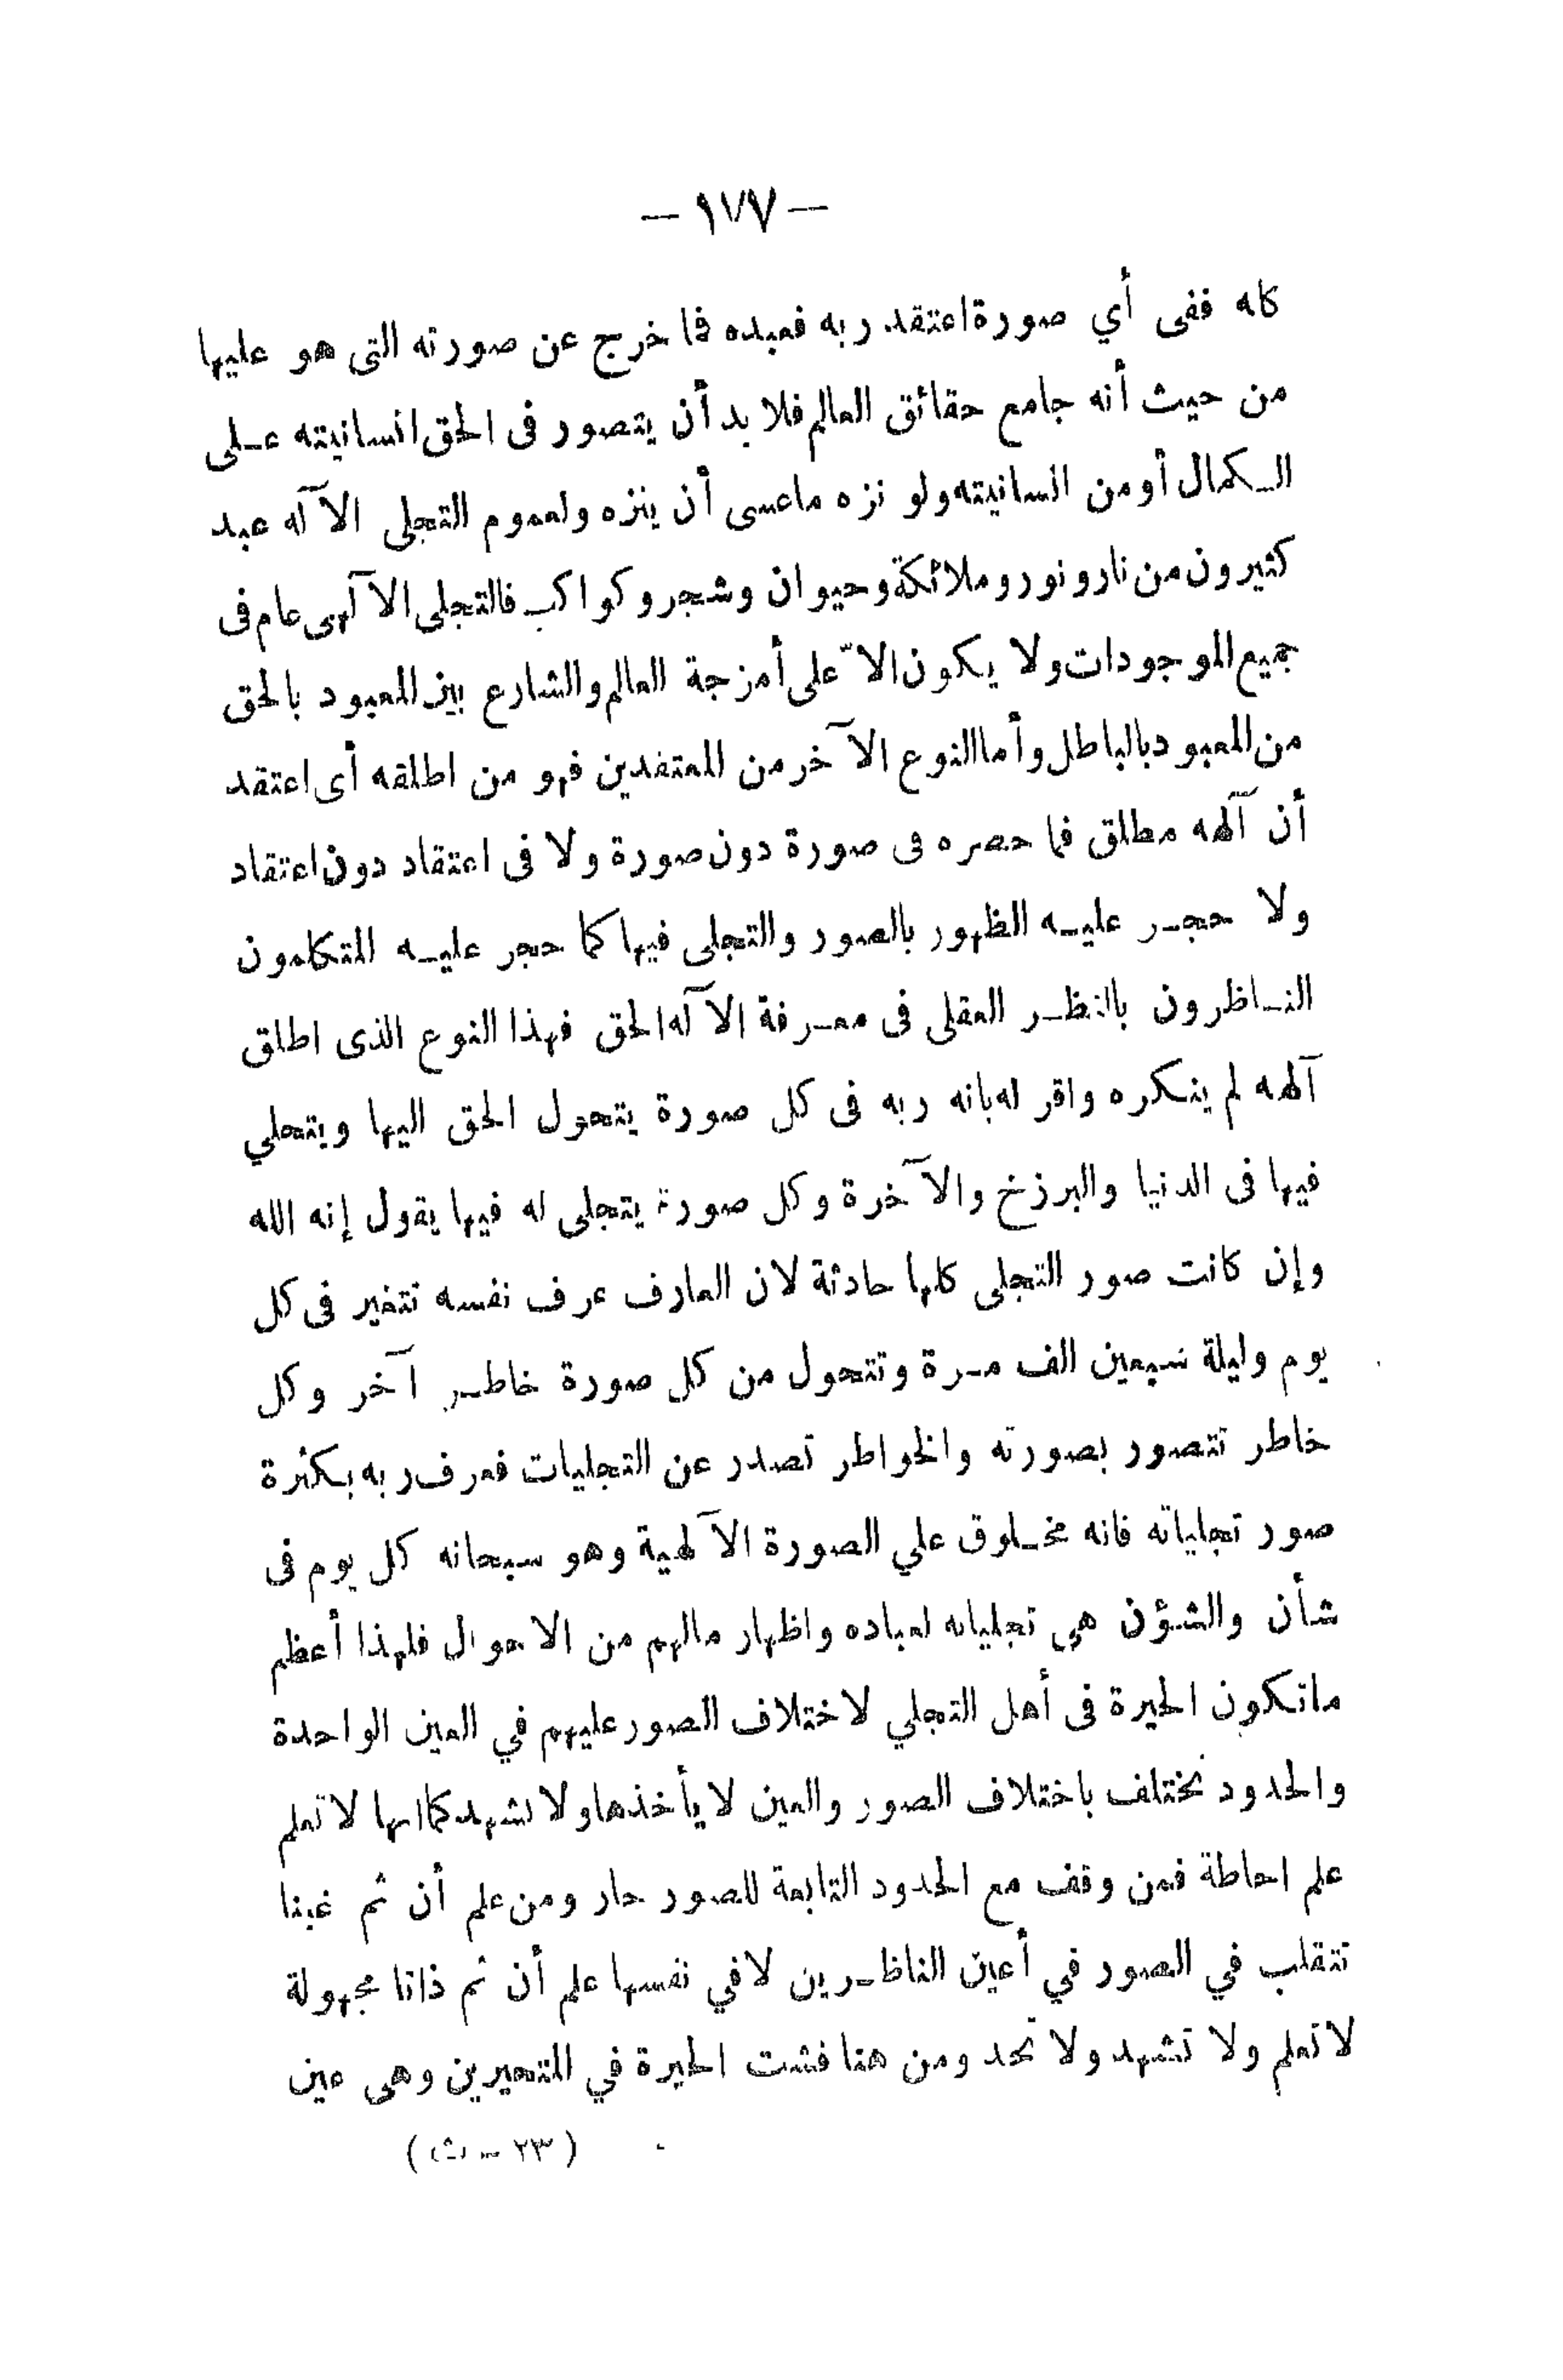 — ١٧٧ —
كله ففى أي صورة اعتقد ربه فعبده فما خرج عن صورته التى هو عليها
من حيث أنه جامع حقائق العالم فلا بد أن يتصور فى الحق انسانيته عـلى
الـكمال أو من انسانيته ولو نزه ما عسى أن ينزه ولعموم التجلى الآله عبد
كثيرون من نار ونور وملائكة وحيوان وشجر وكواكب فالتجلى الآلهى عام فى
جميع الموجودات ولا يكون الاّ على أمزجة العالم والشارع بين المعبود بالحق
من المعبود بالباطل وأما النوع الآخر من المعتقدين فهو من اطلقه أى اعتقد
أن آلهه مطلق فما حصره فى صورة دون صورة ولا فى اعتقاد دون اعتقاد
ولا حجـر عليـه الظهور بالصور والتجلى فيها كما حجر عليـه المتكلمون
النـاظرون بالنظـر العقلى فى معـرفة الآله الحق فهذا النوع الذى اطلق
آلهه لم ينكره واقر له بانه ربه فى كل صورة يتحول الحق اليها ويتجلي
فيها فى الدنيا والبرزخ والآخرة وكل صورة يتجلى له فيها يقول إنه الله
وإن كانت صور التجلى كلها حادثة لان العارف عرف نفسه تتغير فى كل
يوم وليلة سبعين الف مـرة وتتحول من كل صورة خاطـر آخر وكل
خاطر تتصور بصورته والخواطر تصدر عن التجليات فعرف ربه بكثرة
صور تجلياته فانه مخـلوق علي الصورة الآلهية وهو سبحانه كل يوم فى
شأن والشؤن هي تجلياته لعباده واظهار مالهم من الاحوال فلهذا أعظم
ماتكون الحيرة فى أهل التجلي لاختلاف الصور عليهم في العين الواحدة
والحدود تختلف باختلاف الصور والعين لا يأخذها ولا تشهد كما انها لا تعلم
علم احاطة فمن وقف مع الحدود التابعة للصور حار ومن علم أن ثم غبنا
تتقلب في الصور في أعين الناظـرين لافي نفسها علم أن ثم ذاتا مجهولة
لا تعلم ولا تشهد ولا تحد ومن هنا فشت الحيرة في المتحيرين وهى عين
(٢٣ — ث)